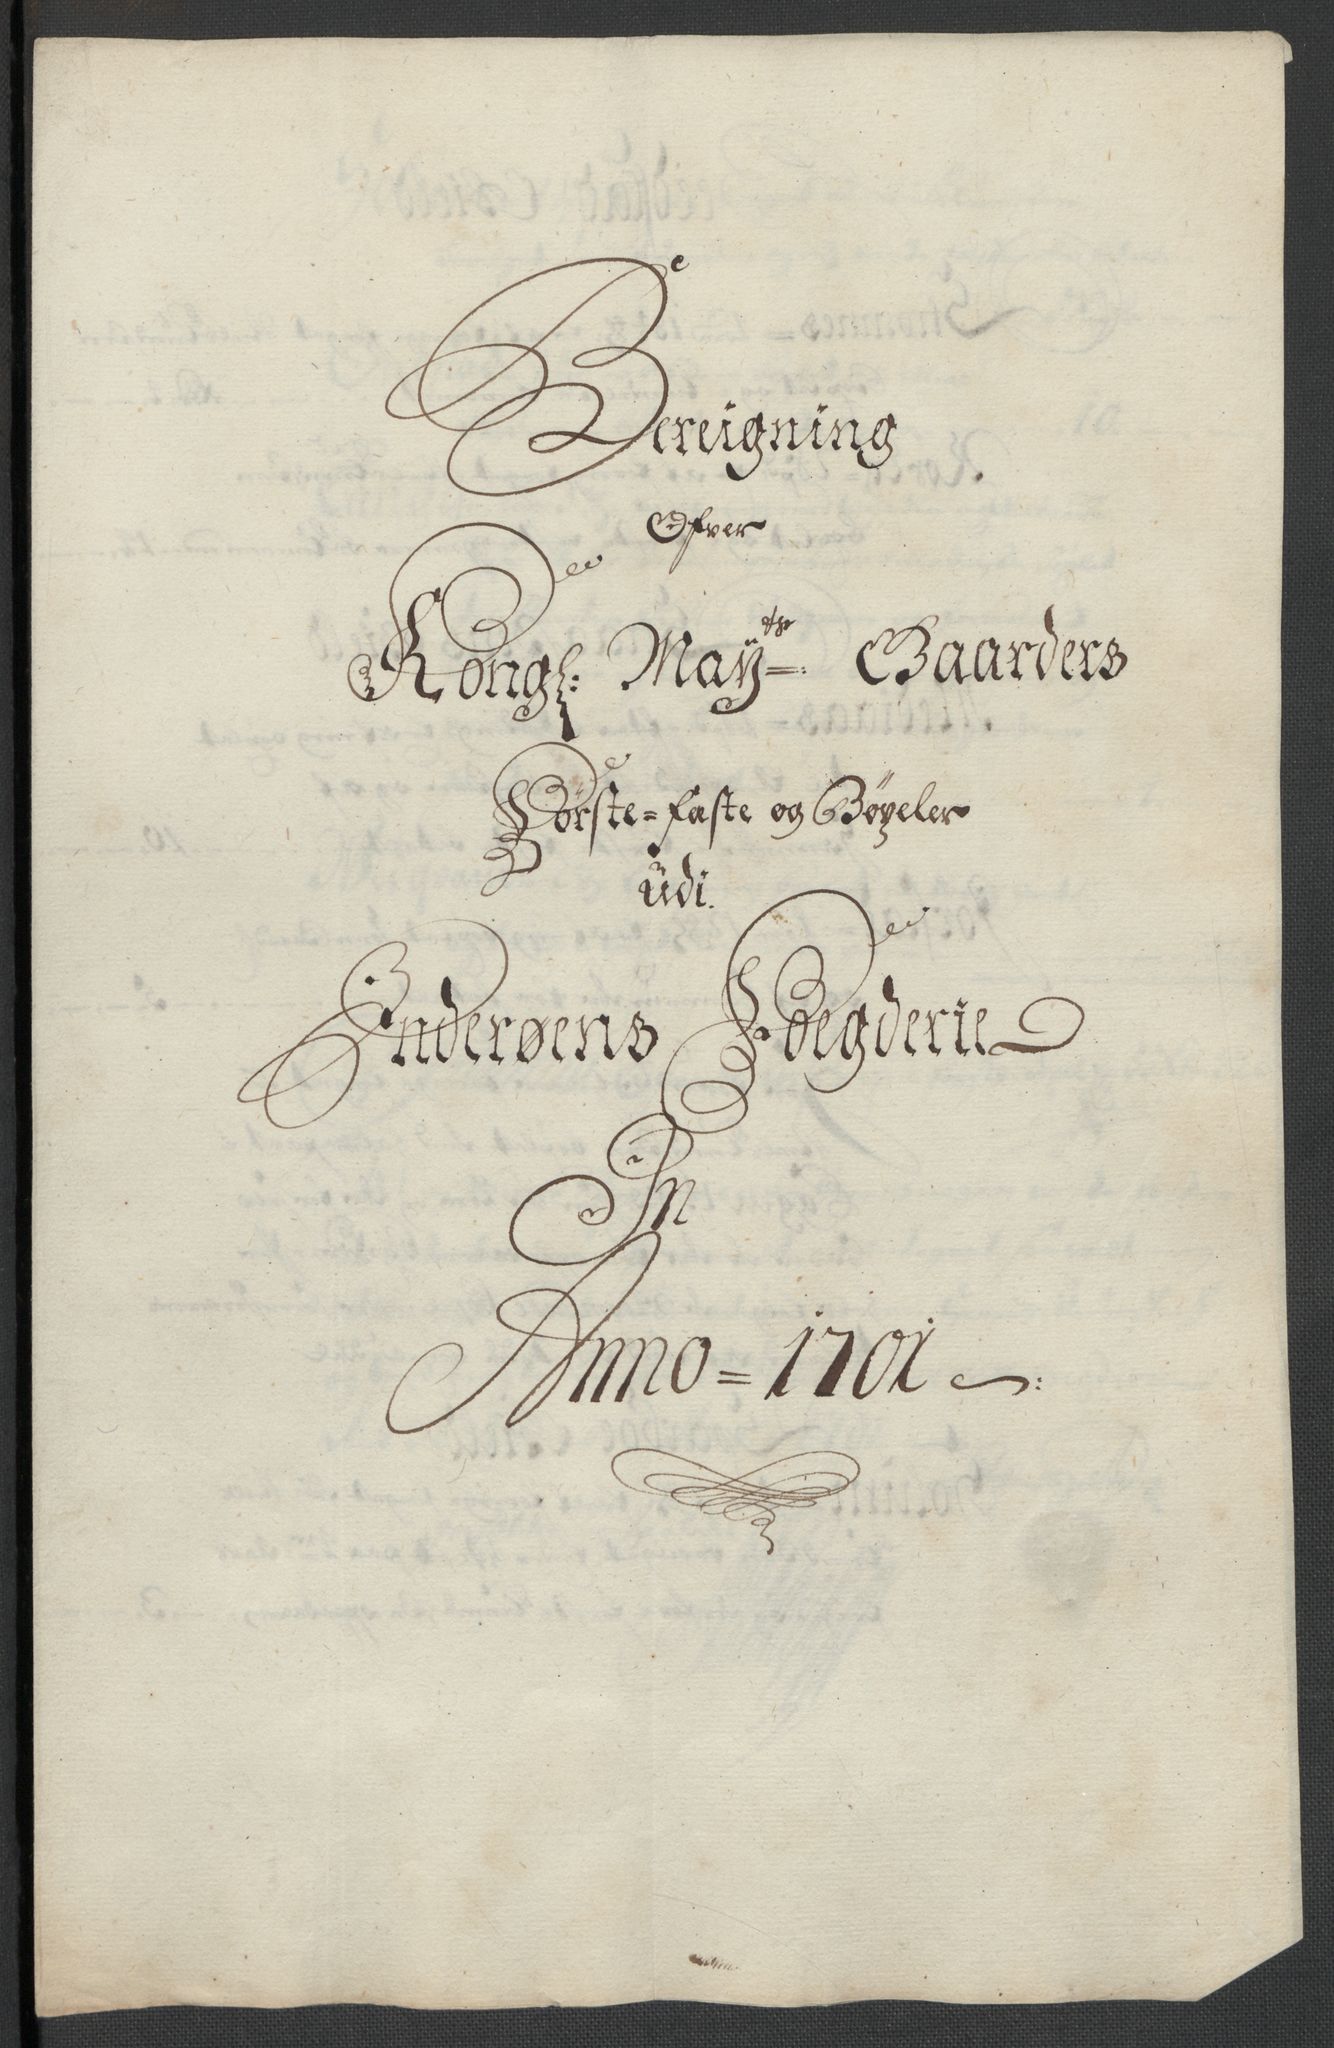 Bereigning
Ofver
Kongl: Mayts: Gaarders
Förste=fæste og Bøxeler
udi.
Inderøens Foegderie
In
Anno = 1701